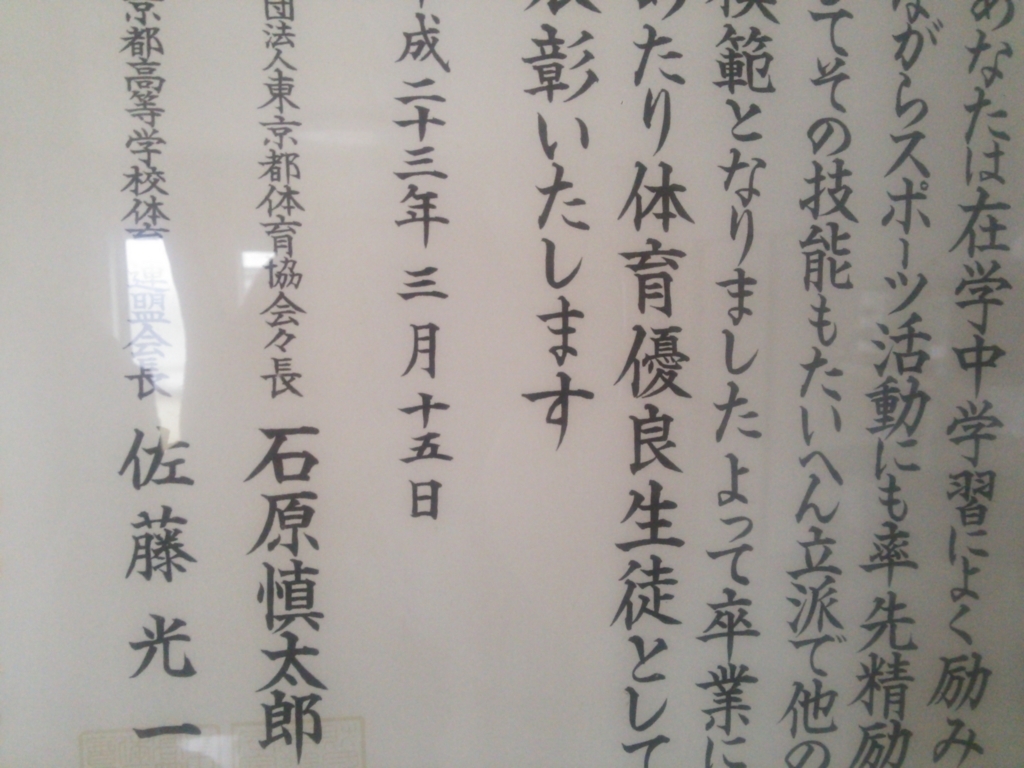 あなたは在学中学習によく励み
ながらスポーツ活動にも率先精励
してその技能もたいへん立派で他の
模範となりましたよって卒業に
あたり体育優良生徒として
表彰いたします
平成二十三年三月十五日
団法人東京都体育協会々長 石原慎太郎
京都高等学校体育連盟会長 佐藤光一